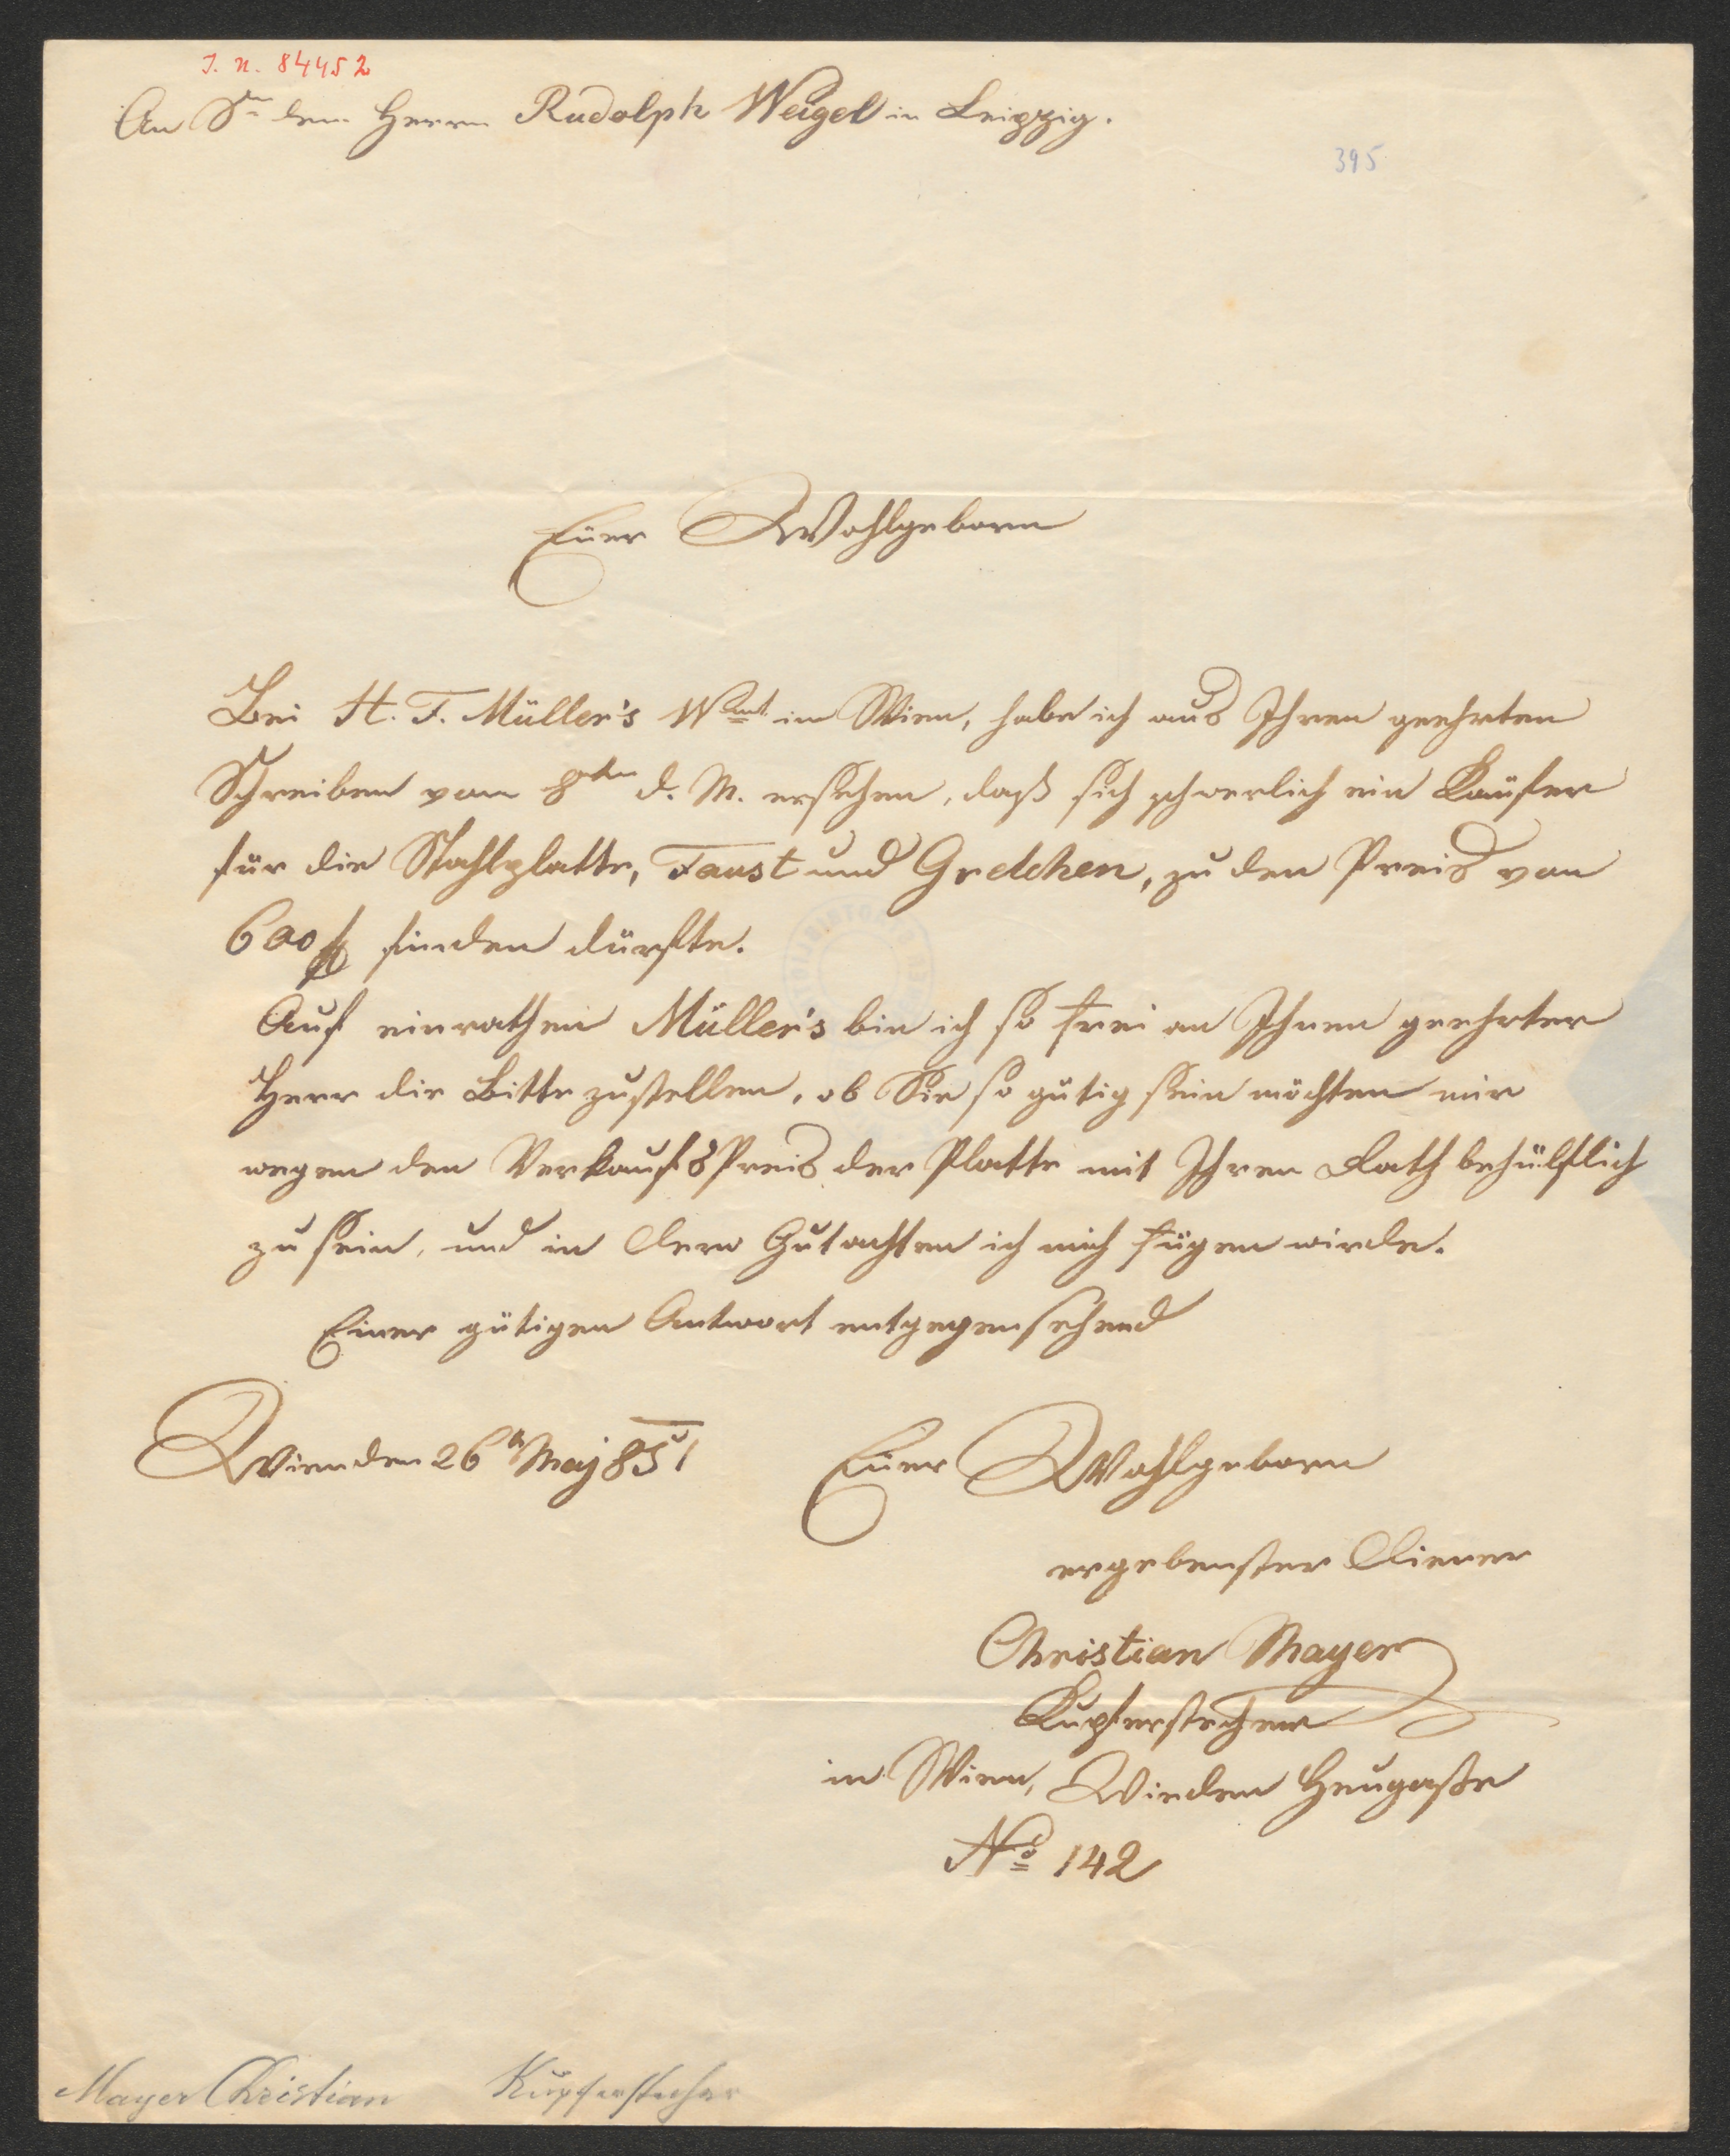 J. N. 84452
An Sr dem Herrn Rudolph Weigel in Leipzig.
395
Euer Wohlgeborn
Bei H. F. Müller's Wwe in Wien, habe ich aus Ihren geehrten
Schreiben vom 8ten d. M. ersehen, daß sich schwerlich ein Käufer
für die Stahlplatte, Faust und Gretchen, zu den Preis von
600 finden dürfte.
Auf einrathen Müller's bin ich so frei an Ihnen geehrter
Herr die Bitte zustellen, ob Sie so gütig sein möchten mir
wegen den Verkaufs Preis der Platte mit Ihren Rath behülflich
zu sein, und in dero Gutachten ich mich fügen wirde.
Einer gütigen Antwort entgegensehend
Wien den 26t Maj 851
Euer Wohlgeborn
ergebenster Diener
Christian Mayer
Kupferstecher
in Wien, Wieden Heugaße
No 142
Mayer Christian Kupferstecher